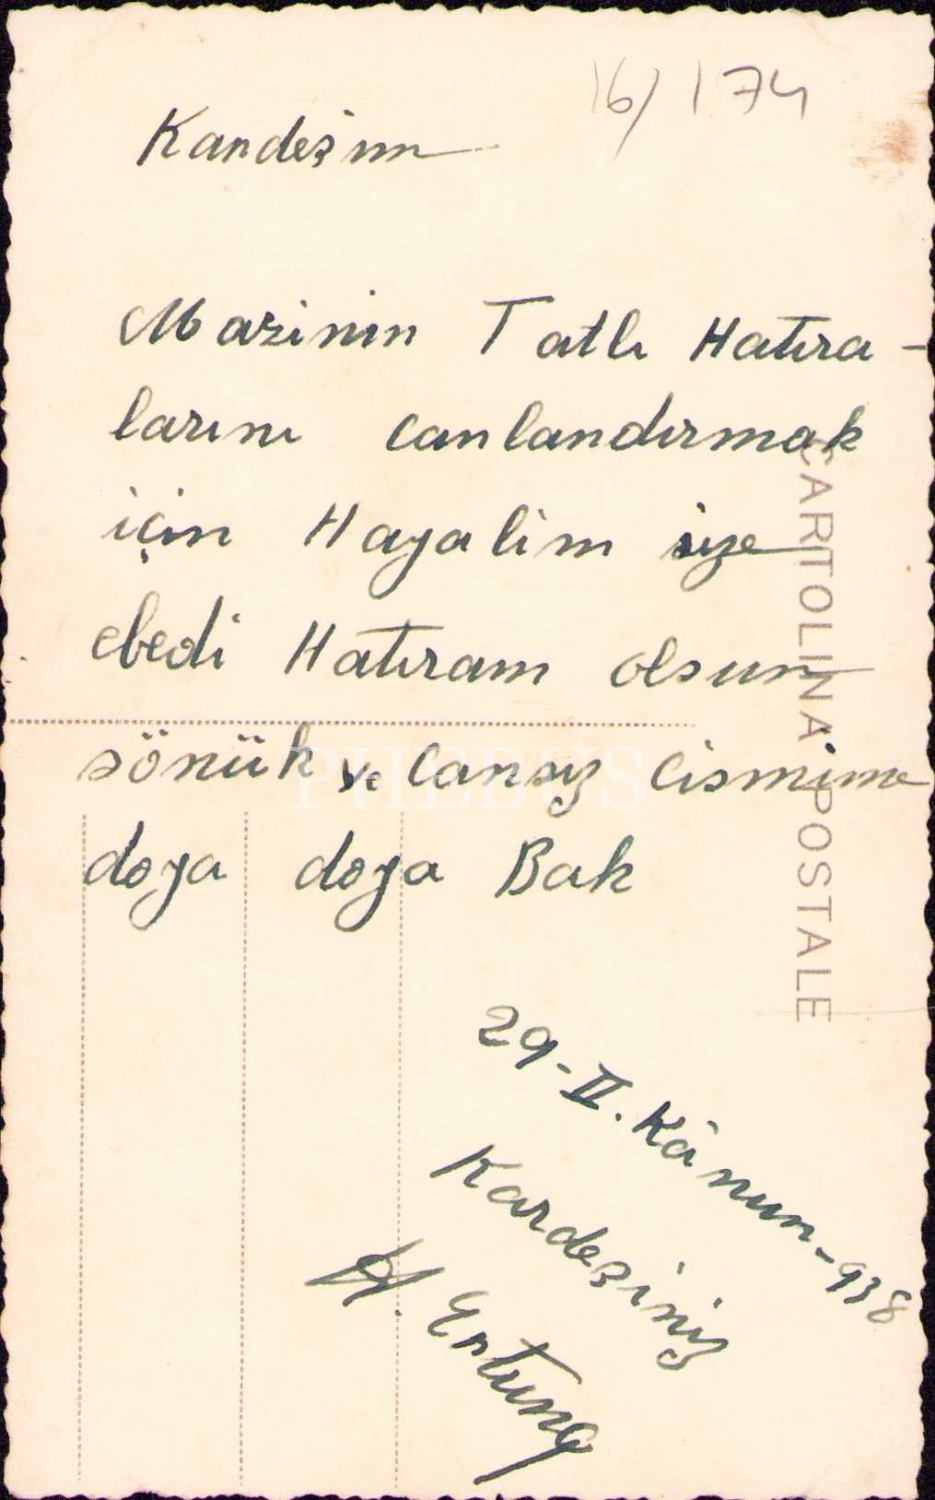 16/174
Kardeşim
Mazinin Tatlı Hatıra-
larını canlandırmak
için Hayalim size
ebedi Hatıram olsun
sönük ve Cansız Cismime
doya doya Bak
29-II. Kânun-938
Kardeşiniz
H. Ertunç
CARTOLINA POSTALE
PHEBUS